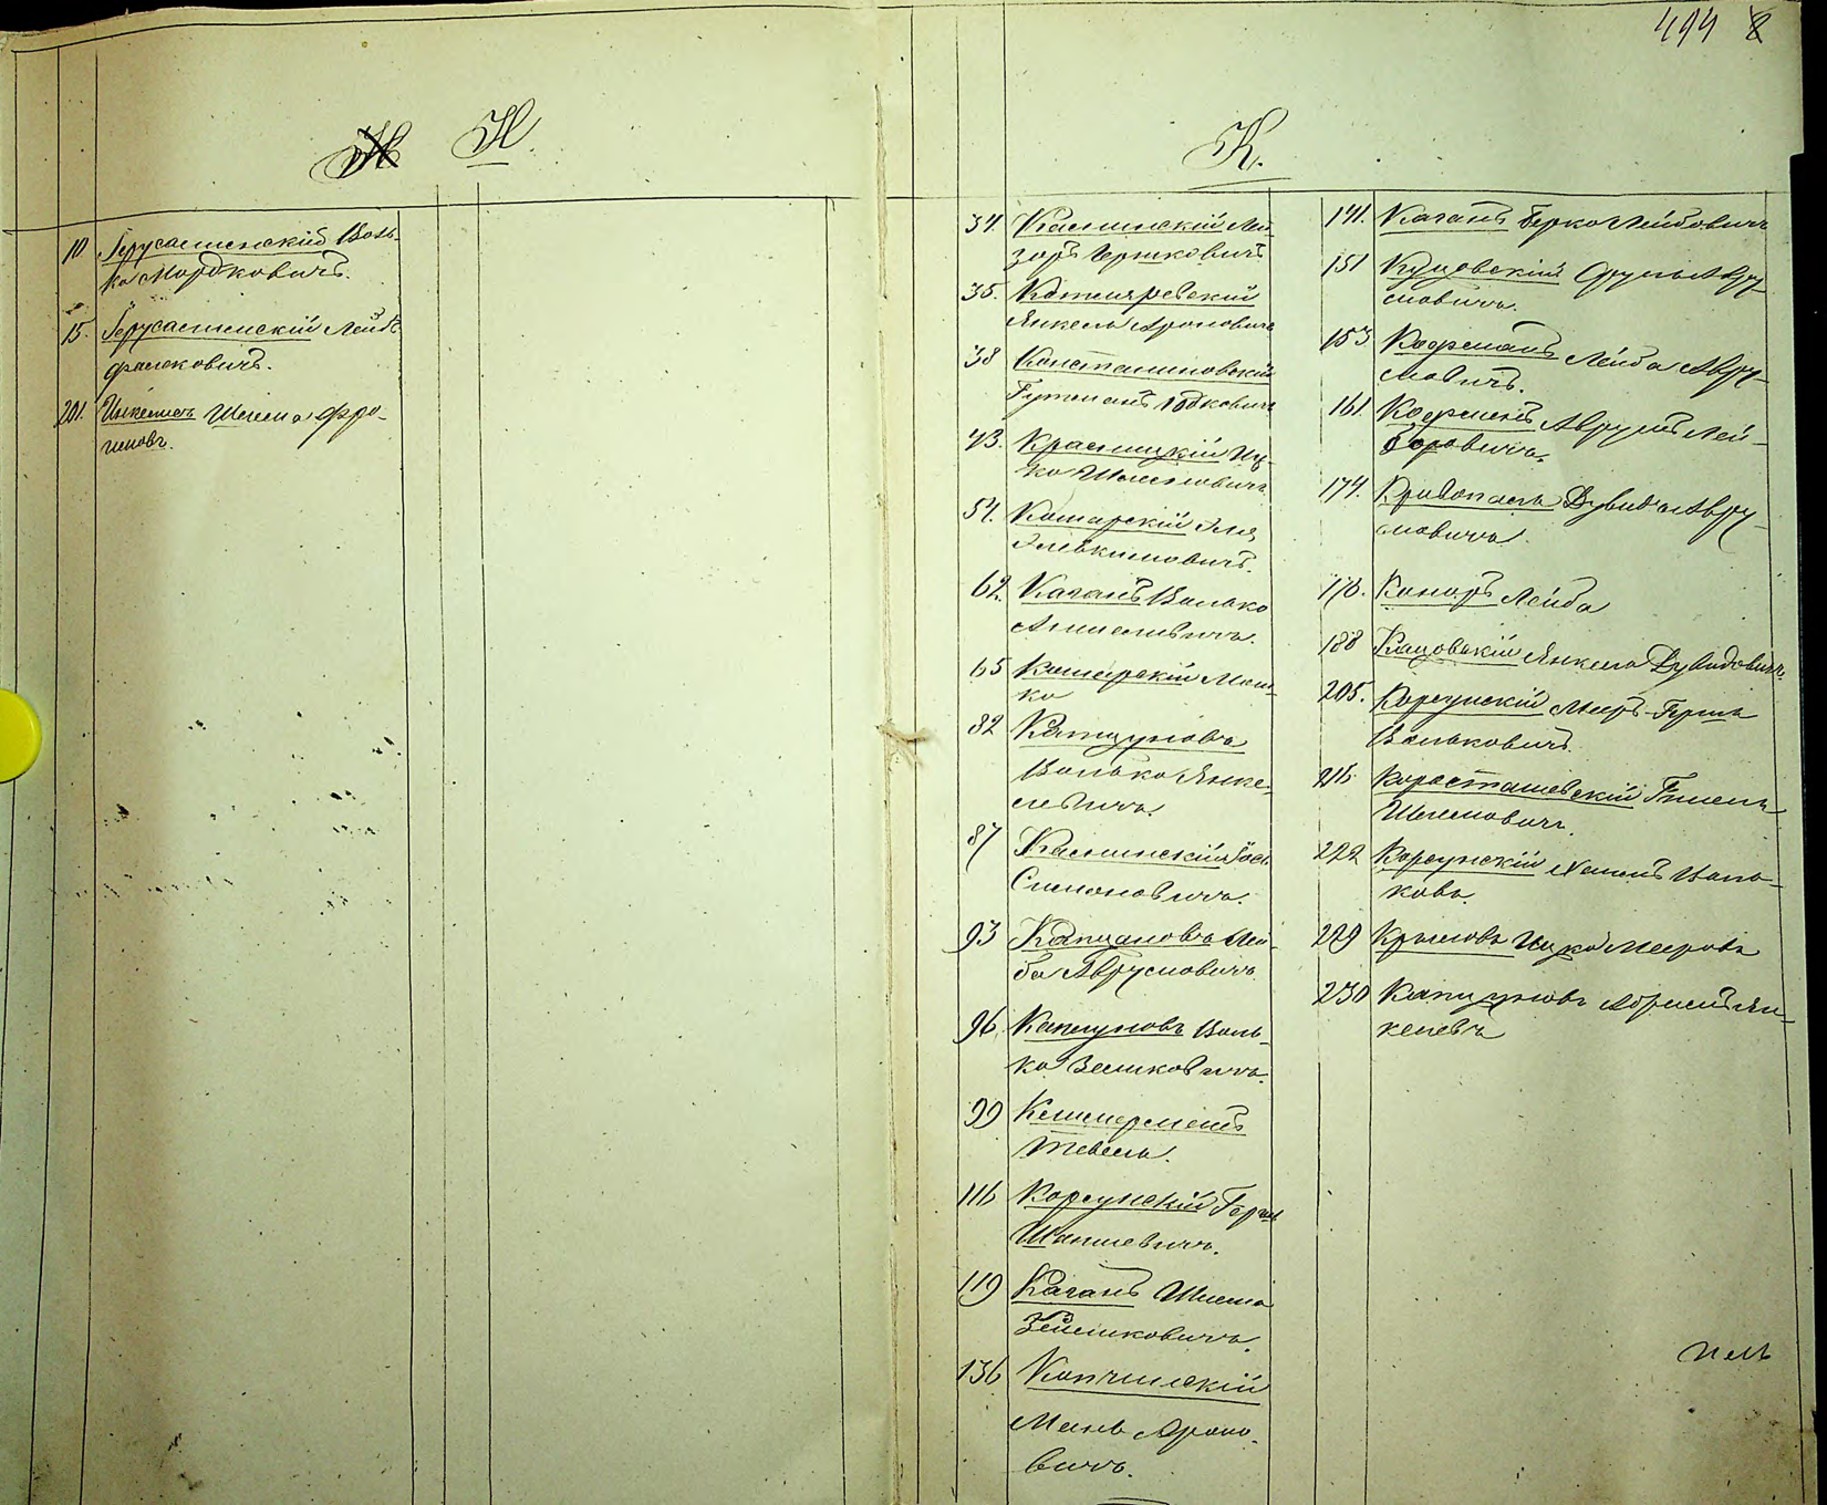 494 8
И
10. Іерусалимскій Воль-
ко Мордковичъ.
15. Іерусалимскій Лейб
фальковичъ.
201. Инкелисъ Шлема Фро-
имовъ.
К.
34. Калининскій Лей-
зоръ Гершковичъ
35. Котляревскій
Янкель Ароновичъ
38 Константиновскій
Гутманъ Іодковичъ
43. Красницкій Иц-
ко Шлемовичъ
54. Комарскій Эля
Эльякимовичъ.
62. Каганъ Волько
Аншелевичъ.
65 Комарскій Мош-
ко
82 Капцуновъ
Волько Янке-
левичъ.
87 Калининскій Іось
Симоновичъ.
93 Капцановъ Лей-
ба Аврумовичъ
96 Капцуновъ Воль-
ко Зеликовичъ.
99 Келлерманъ
Тевель.
116 Корсунскій Герш
Шапшевичъ.
119 Каганъ Шлема
Зейликовичъ.
136 Копчинскій
Мань Ароно-
вичъ.
141. Каганъ Берко Лейбовичъ
151 Куцовскій Срульъ Авру-
мовичъ.
153 Кофманъ Лейба Авру-
мовичъ.
161. Кофманъ Аврумъ Лей-
боровичъ.
174. Кривопасъ Дувидъ Авру-
мовичъ.
176. Каноръ Лейба
188 Кацовскій Янкель Дувидовичъ
205. Корсунскій Мееръ-Гершъ
Вольковичъ.
216 Коросташевскій Гилель
Шлемовичъ.
222 Корсунскій Хаимъ Воль-
ковъ.
229 Крымовъ Ицко Мееровъ
230 Капцуновъ Абрамъ Ян-
келевъ